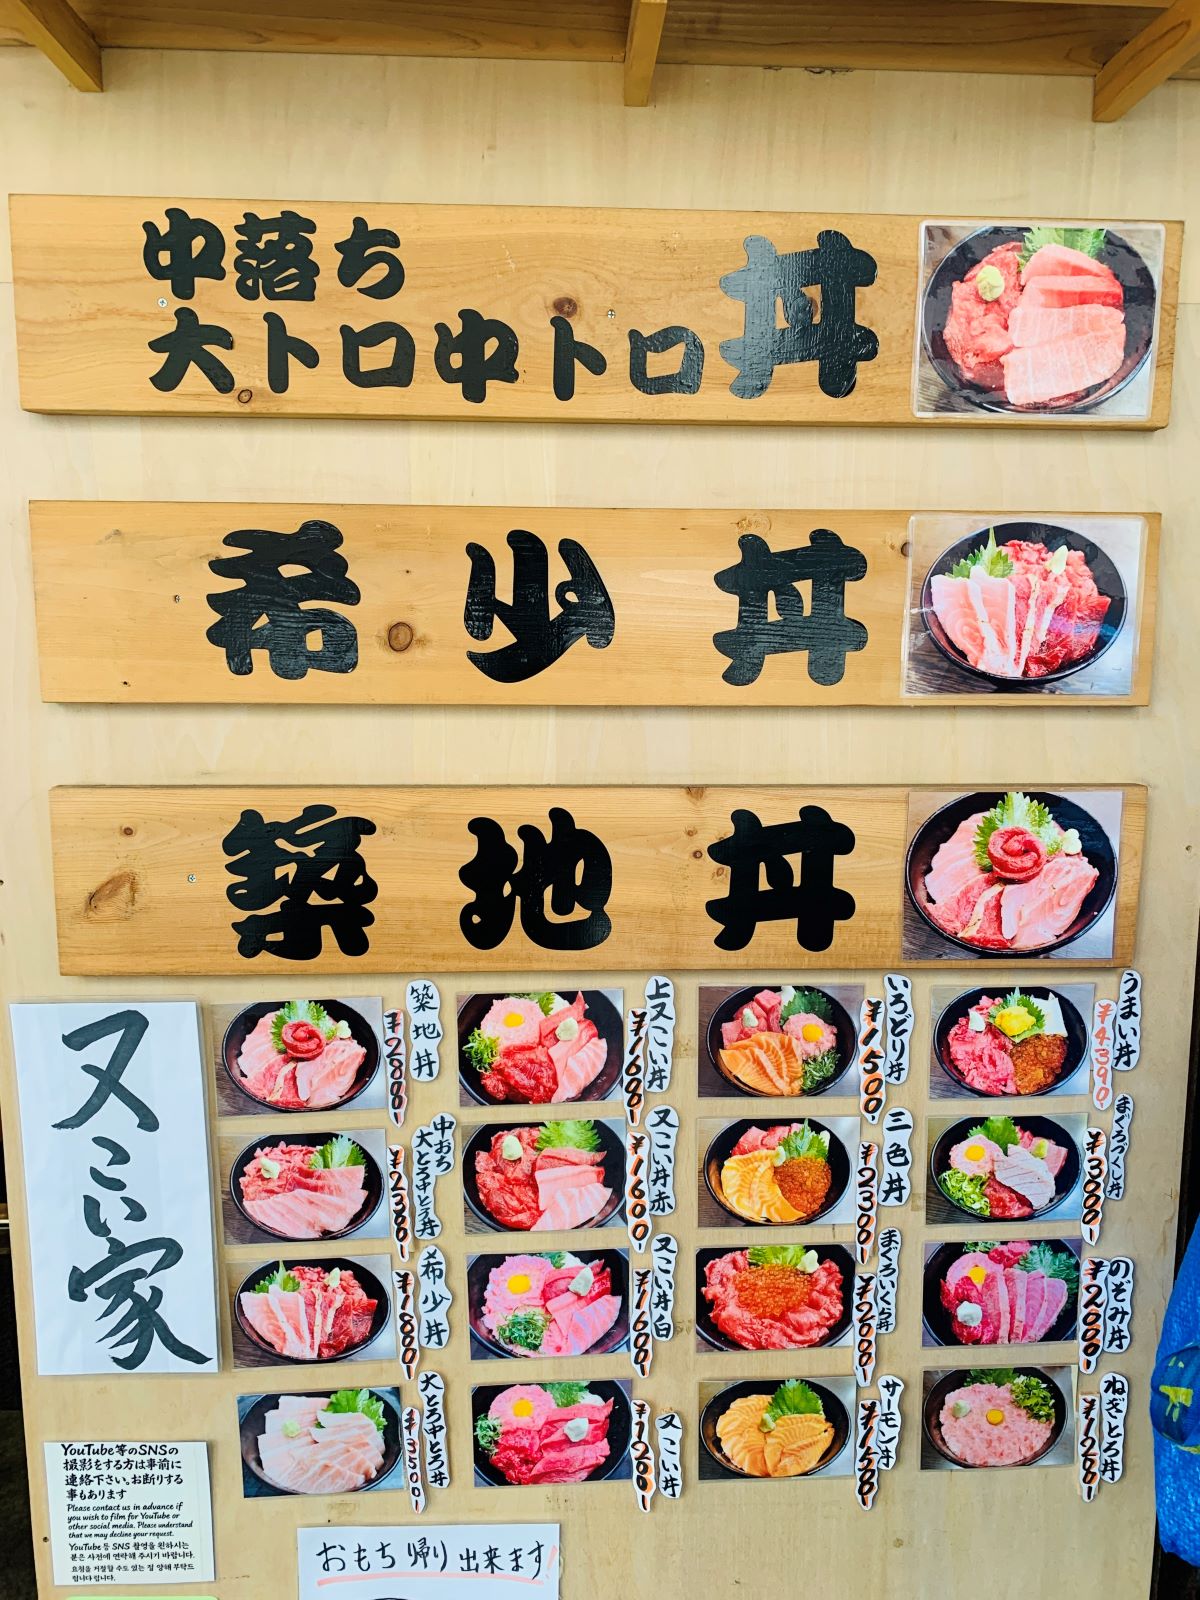 中落ち
大トロ中トロ丼
希少丼
築地丼
又こい家
築地丼
¥2800-
上又こい丼
¥1600-
いろどり丼
¥1500-
うまい丼
¥4390-
中おち
大とろ中とろ丼
¥2300-
又こい丼赤
¥1600-
三色丼
¥2300-
まぐろづくし丼
¥3000-
希少丼
¥1800-
又こい丼白
¥1600-
まぐろいくら丼
¥2000-
のぞみ丼
¥2000-
大とろ中とろ丼
¥3500-
又こい丼
¥1200-
サーモン丼
¥1500-
ねぎとろ丼
¥1200-
YouTube等のSNSの
撮影をする方は事前に
連絡下さい。お断りする
事もあります
Please contact us in advance if
you wish to film for YouTube or
other social media. Please understand
that we may decline your request.
YouTube 등 SNS 촬영을 원하시는
분은 사전에 연락해 주시기 바랍니다.
요청을 거절할 수도 있는 점 양해 부탁드
립니다 립니다.
おもち帰り出来ます!